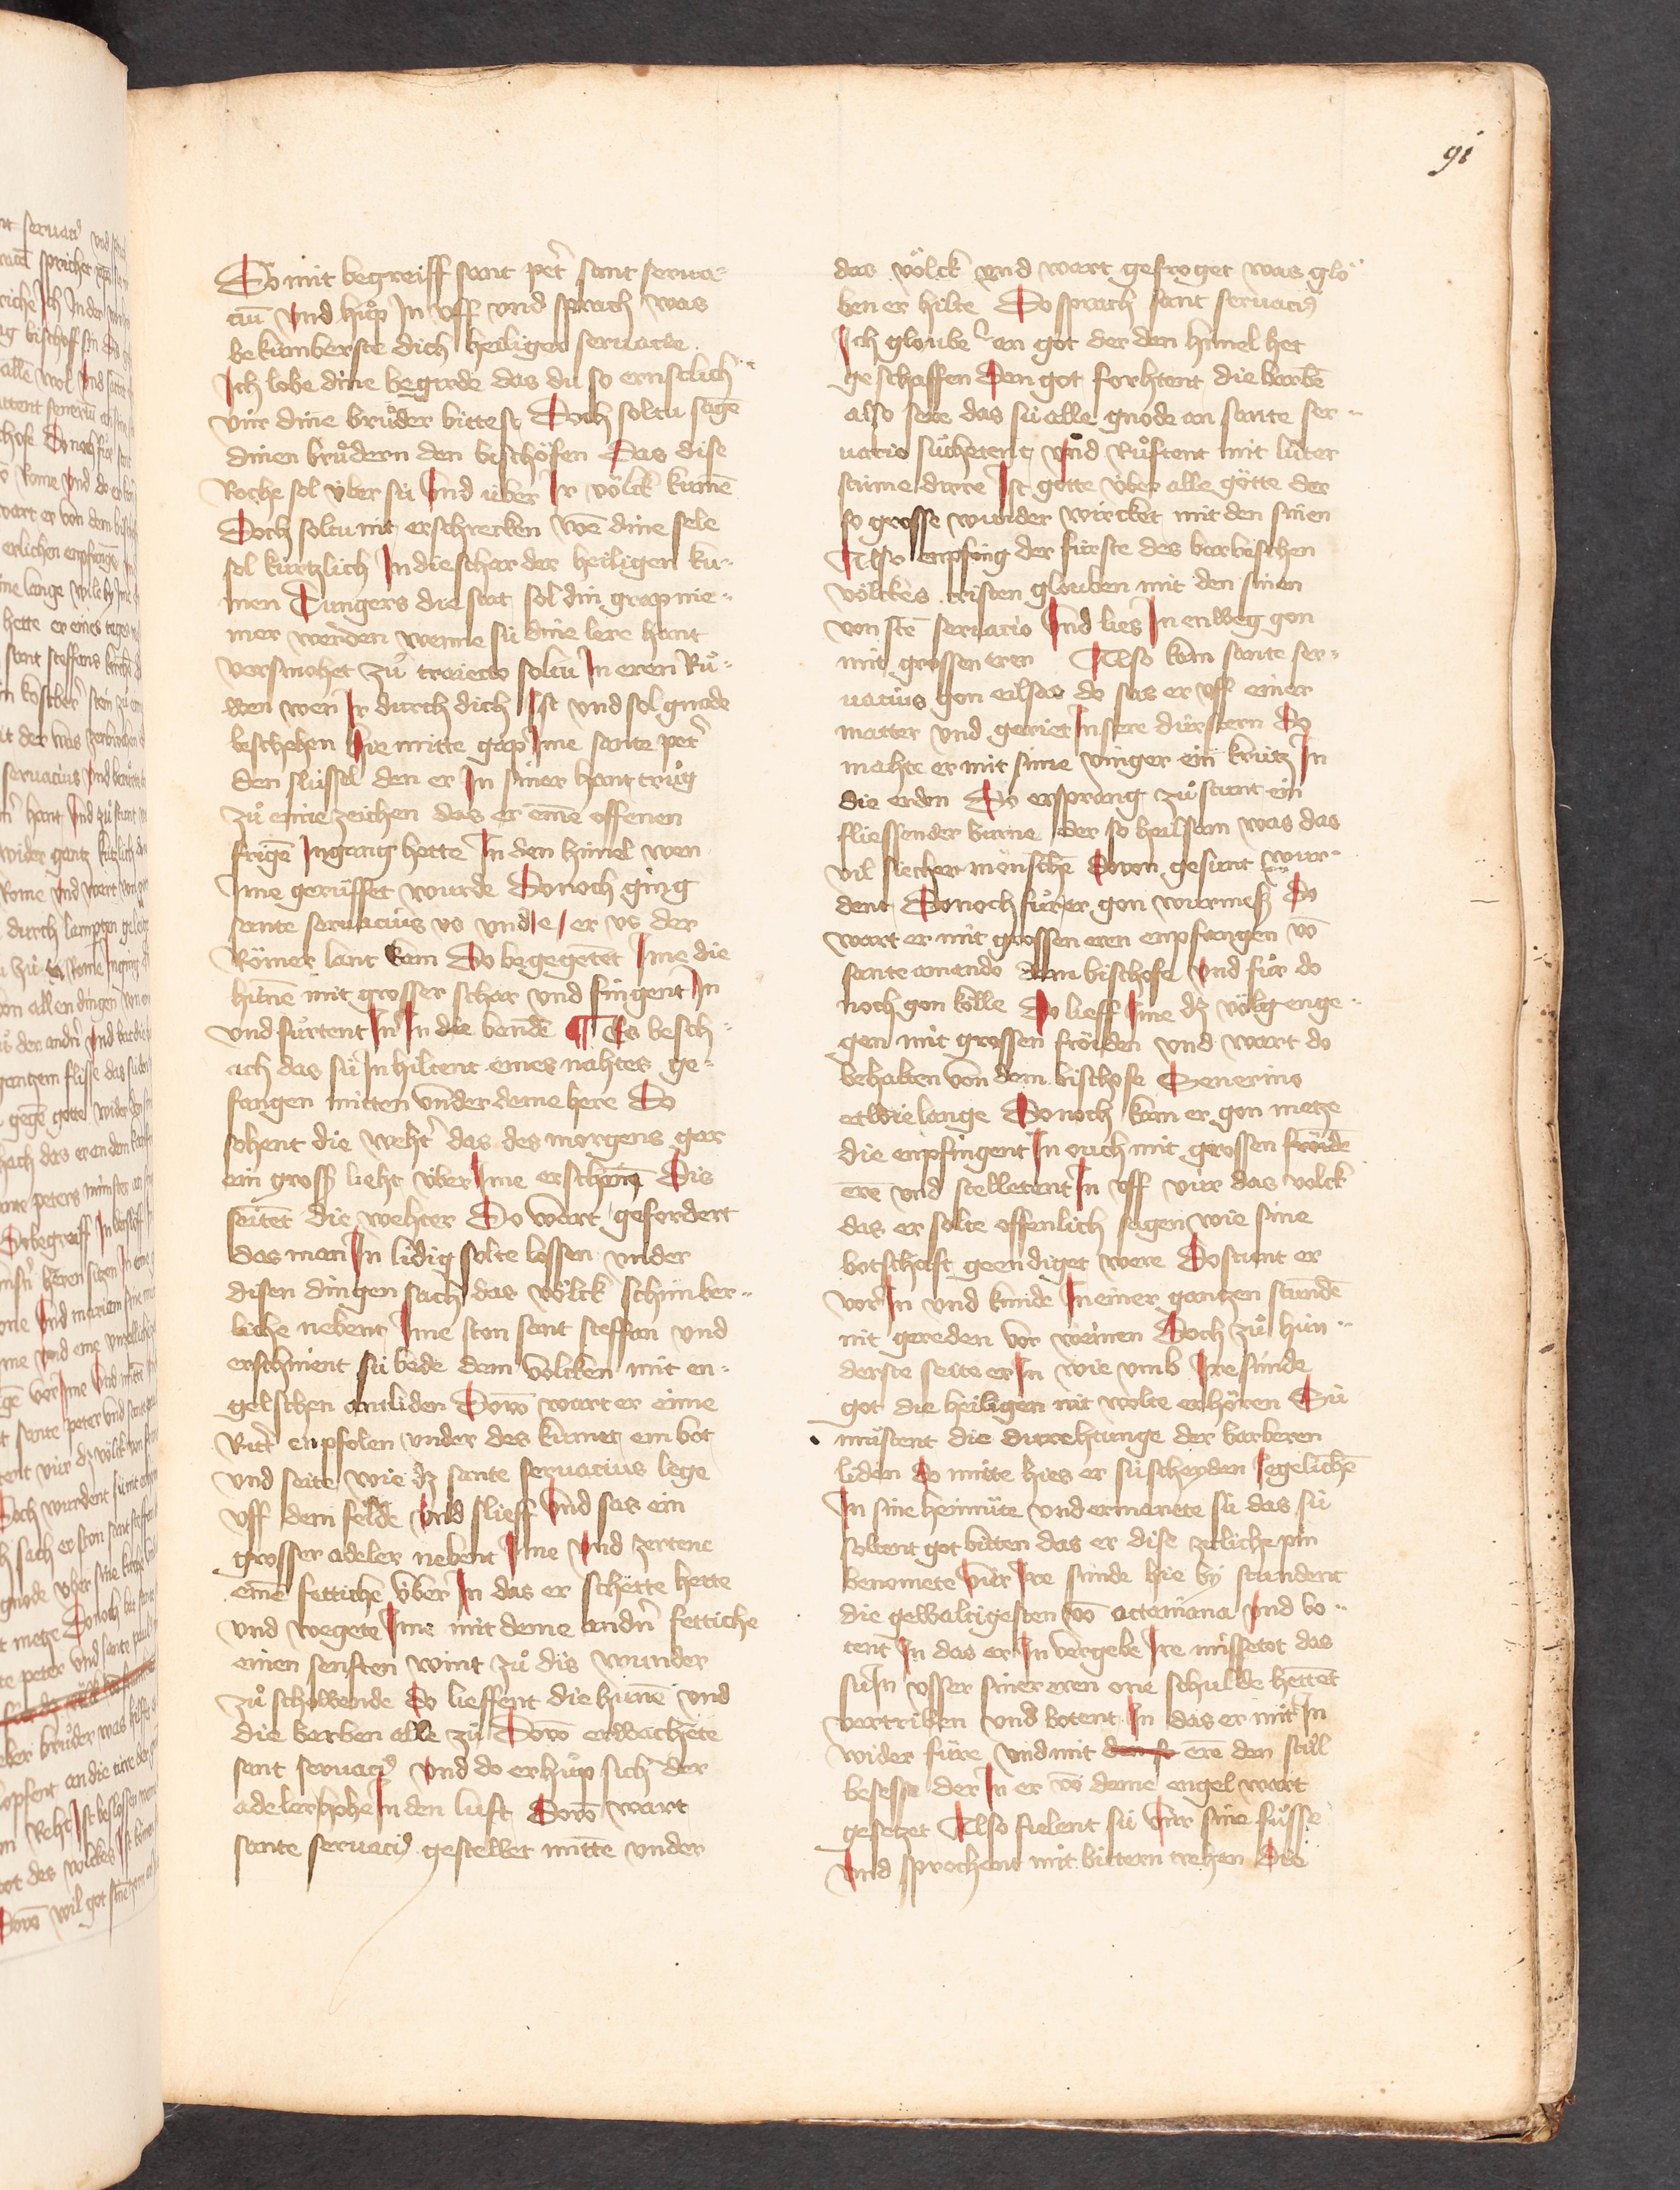 91
Do mit begreiff sant pet̄ sant serua-
ciū vnd hůp In vff vnd sprach was
bekumberste dich heiliger seruacie
Ich lobe dine begirde das du so ernstlich
vúr dine brůder bittest Doch soltu sagē
dinen brůdern den bischöfen Das dise
Roche sol úber sú vnd úber Ir völck kumē
Doch soltu nit erschrecken wē dine sele
sol kurtzlich In die schar der heiligen ku-
men Tungers die stat sol din grap nie-
mer werden wenne sú dine lere hant
versmohet zů traiecto soltu In eren Rů-
wen wen Ir durch dich Ist vnd sol gnade
beschehen Hie mitte gap Ime sante pet̄
den slússel den er In siner hant trůg
zů eime zeichen das er eine offenen
frigē Ingang hette In den himel wen
Ime gerúffet wurde Donoch ging
sante seruacius vs vnd e er vs der
Römer lant kam Do begegētēt Ime die
húnē mit grosser schar vnd fingent In
vnd fůrtent In In die bende Es besch-
ach das sú In hiltent eines nahtes ge-
fangen mitten vnder deme here Do
sohent die weht̄ das des morgens gar
ein gross lieht úber Ime erschein Dis
seitēt die wehter Do wart gefordert
das man In lidig solte lossen vnder
disen dingen sach das völck schinber-
liche nebent Ime ston sant steffan vnd
erschinent sú bede dem völcken mit en-
gelschen antliden Dovō wart er eime
Ritt̄ enpfolen vnder des kumet ein bot
vnd seite wie dz sante seruacius lege
vff dem felde vnd slieff vnd sas ein
grosser adeler nebent Ime vnd zertene
einē fettichē úber In das er schette hette
vnd wegete Ime mit deme andn̄ fettiche
einen senften wint zů dis wunder
zů schowende do lieffent die húnē vnd
die barben alle zů Dovō erwachete
sant seruaci9 vnd do erhůp sich der
adeler hohe In den luft Dovō wart
sante seruaci9 gestellet mitte vnder
das völck vnd wart gefroget was glö-
ben er hilte Do sprach sant seruaci9
Ich gloube an got der den himel het
geschaffen Den got forhtent die barbē
also sere das sú alle gnode an sante ser-
uacio sůchetent vnd Růftent mit luter
stimme dirre Ist gotte úber alle götte der
so grosse wunder wircket mit den sinen
Also enpfing der fúrste des barbischen
völckes cristen glouben mit den sinen
von stē seruacio vnd lies In enweg gon
mit grossen eren Also kam sante ser-
uacius gon eilsas do sas er vff einer
matter vnd geriet In sere dúrstern Do
mahte er mit sime vinger ein krútz In
die erden Do ersprang zů stunt ein
fliessender burne der so heilsam was das
vil siecher mönschē dovon gesunt wur-
dent Donoch fůr er gon wurmesz Do
wart er mit grossen eren enpfangen vō
sante amando dem bischofe vnd fůr do
noch gon kölle Do lieff Ime dz völg enge-
gen mit grossen fröiden vnd wart do
behalten von dem bischofe Seuerino
etwie lange Donoch kam er gon metze
die enpfingent In ouch mit grossen fröidē
erē vnd stelletent In vff vúr das volck
das er solte offenlich sagen wie sine
botschaft geendiget were Do stunt er
vor In vnd kunde In einer gantzen stunde
nit gereden vor weinen Doch zů hin-
derste seite er In wie vmb Ire súnde
got die heiligen nit wolte erhören Sú
můstent die durehtunge der barberen
liden do mitte hies er sú scheyden Iegelichē
In sine heimúte vnd ermanete sú das sú
soltent got bitten das er dise zitliche pin
benomete vúr Ire súnde hie by stundent
die gewaltigesten vō actaviana vnd bo-
tent In das er In vergebe Ire missetot das
sú In vsser siner eren one schulde hettēt
vertriben vnd botent In das er mit In
wider fúre vnd mit erē den stůl
besesse der In er vō deme engel wart
gesetzet Also fielent sú vúr sine fůsse
vnd sprochent mit bittern trehen Die